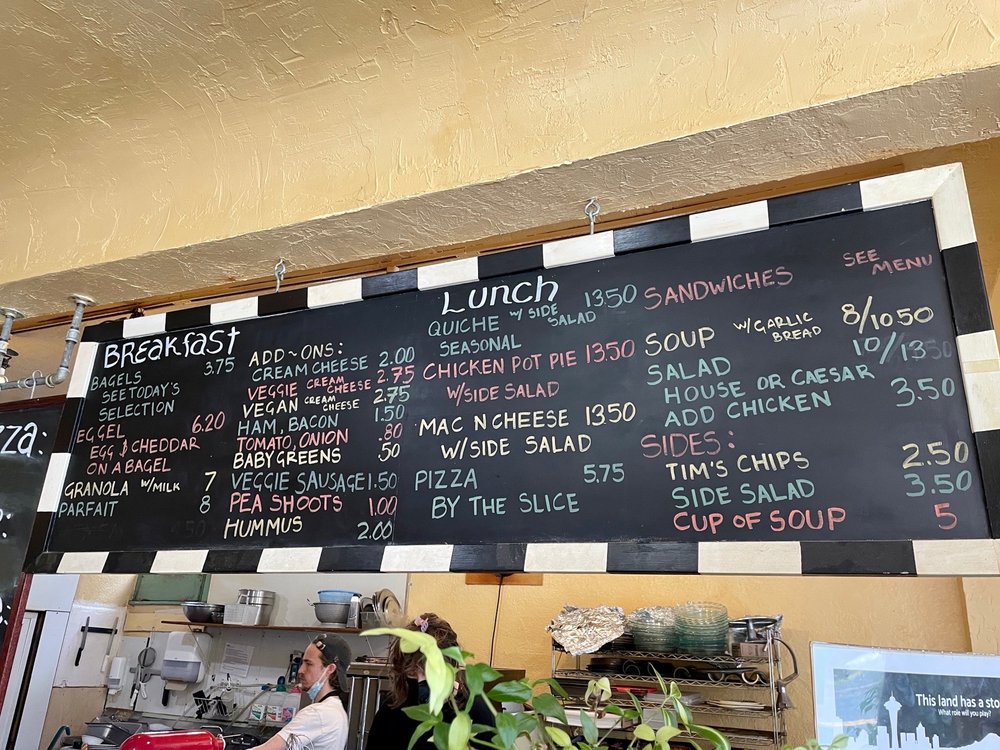 Breakfast
BAGELS 3.75
SEE TODAY'S
SELECTION
EGGEL 6.20
EGG & CHEDDAR
ON A BAGEL
GRANOLA W/MILK 7
PARFAIT 8
ADD-ONS:
CREAM CHEESE 2.00
VEGGIE CREAM CHEESE 2.75
VEGAN CREAM CHEESE 2.75
HAM, BACON 1.50
TOMATO, ONION .80
BABY GREENS .50
VEGGIE SAUSAGE 1.50
PEA SHOOTS 1.00
HUMMUS 2.00
Lunch
QUICHE W/ SIDE SALAD 13.50
SEASONAL
CHICKEN POT PIE 13.50
W/SIDE SALAD
MAC N CHEESE 13.50
W/ SIDE SALAD
PIZZA 5.75
BY THE SLICE
SANDWICHES SEE MENU
SOUP W/GARLIC BREAD 8/10.50
SALAD 10/13
HOUSE OR CAESAR
ADD CHICKEN 3.50
SIDES:
TIM'S CHIPS 2.50
SIDE SALAD 3.50
CUP OF SOUP 5
zza:
This land has a sto
What role will you play?